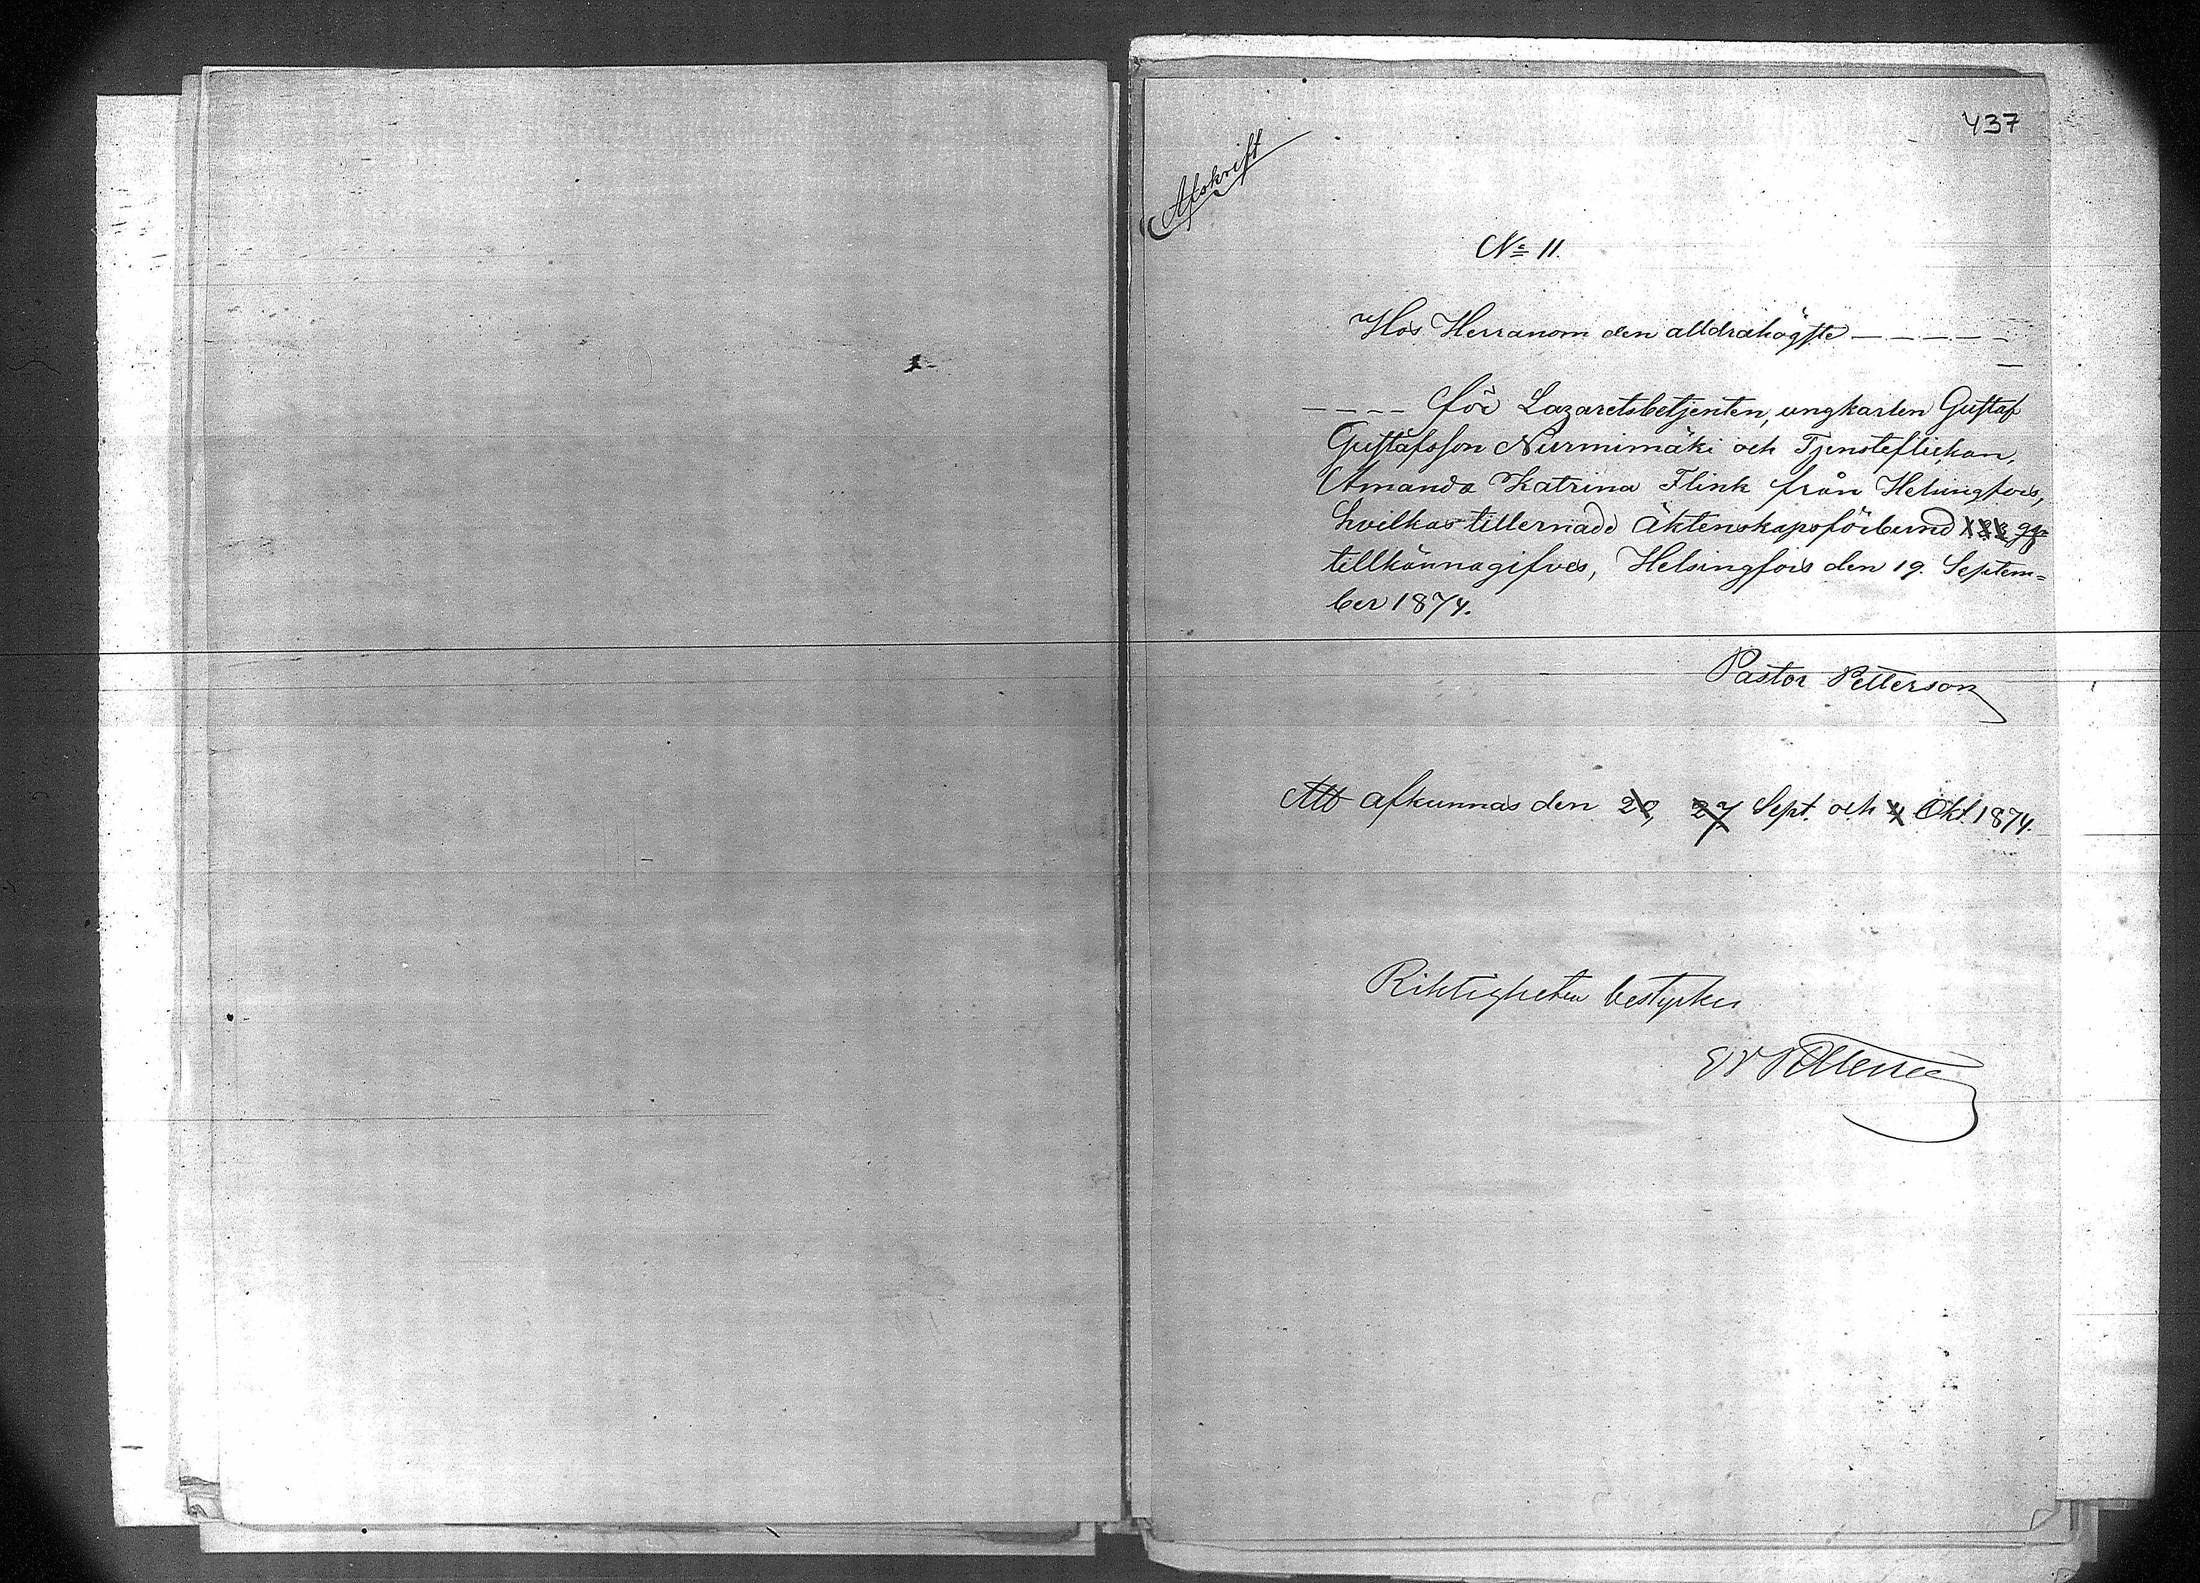 437
Afskrift
No 11.
Hos Herranom den alldrahögste — — — — —
—
— — — — för Lazaretsbetjenten, ungkarlen Gustaf
Gustafsson Nurmimäki och Tjensteflickan,
Amanda Katrina Flink från Helsingfors,
hvilkas tillernade Äktenskapsförbund
tillkännagifves, Helsingfors den 19. Septem=
ber 1874.
Pastor Petterson
Att afkunnas den 20, 27 Sept. och 4 Okt. 1874.
Riktigheten bestyrker